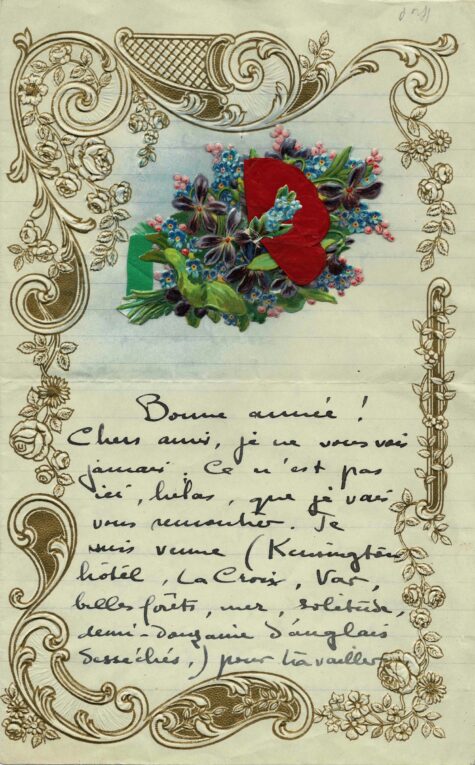 Bonne année !
Chers amis, je ne vous vois
jamais. Ce n'est pas
ici, hélas, que je vais
vous rencontrer. Je
suis venue (Kensington
hôtel, La Croix, Var,
belles forêts, mer, solitude,
demi-douzaine d'anglais
desséchés,) pour travailler